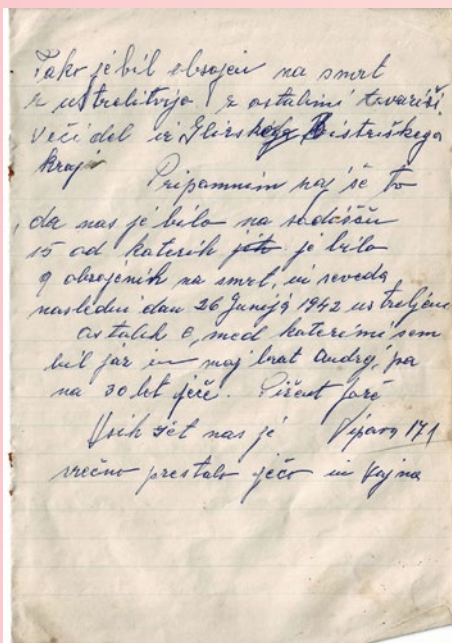 Tako je bil obsojen na smrt
z ustrelitvijo z ostalimi tovariši
večidel iz Ilirsko Bistriškega
kraja
Pripomnim naj še to
da nas je bilo na sodišču
15 od katerih jih je bilo
9 obsojenih na smrt, in seveda
nasledni dan 26 Junija 1942 ustreljeni
Ostalih 6, med katerimi sem
bil jaz in moj brat Andrej, pa
na 30 let ječe. Jože
Vsih nas je Vipava 171
srečno prestalo ječo in